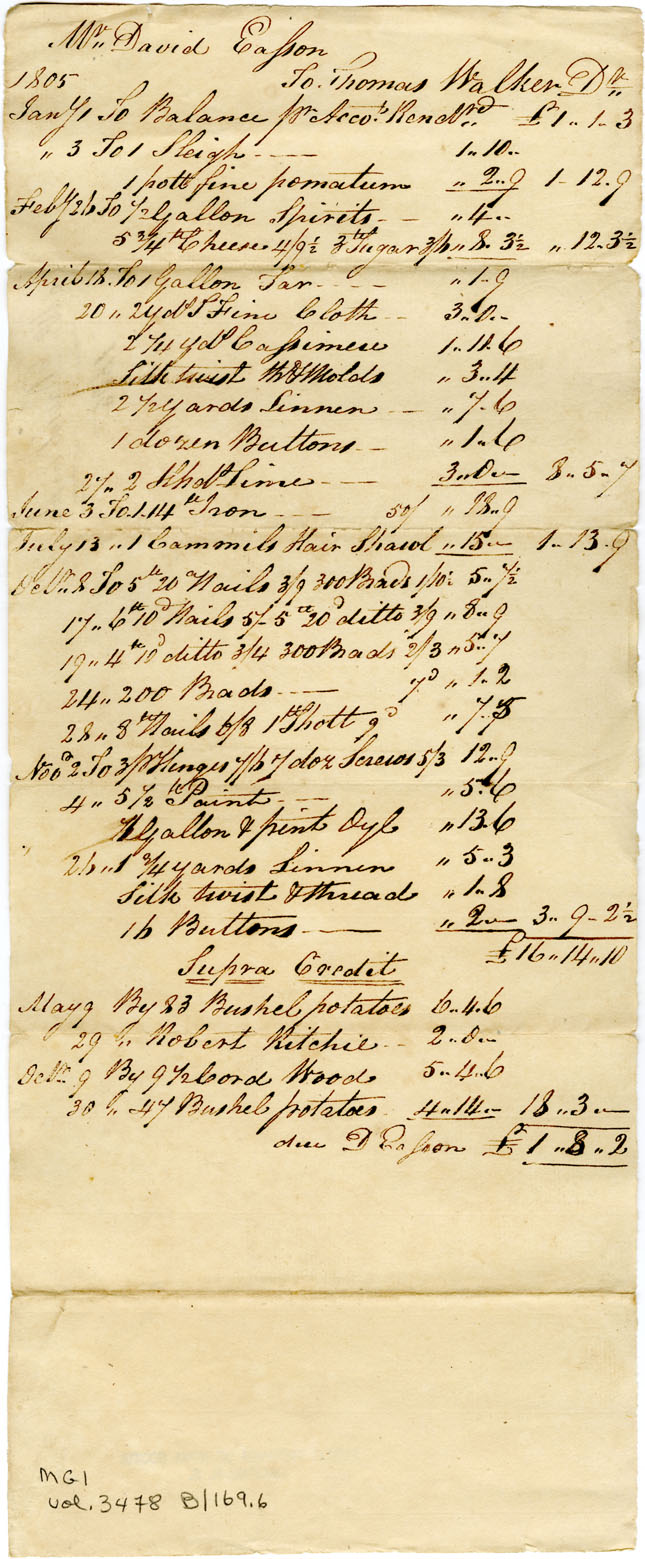 Mr. David Easson
1805 To Thomas Walker Dr.
Jany 1 To Balance pr Accot. Rendrd £1 " 1 - 3
" 3 To 1 Sleigh - - 1 " 10 "
1 pott fine pomatum " 2 " 9 1 - 12 " 9
Feby 26 To 1/2 Gallon Spirits - - " 4 "
5 3/4 lb Cheese 4/9½ 3 lb Sugar 3/6 " 8 " 3½ " 12 " 3½
April 18 To 1 Gallon Tar - - - - " 1 " 9
20 " 2 yds S Fine Cloth - - 3 " 0 "
2 1/4 yds Cassimere 1 " 11 " 6
Silk twist th & Molds " 3 " 4
2 1/2 yards Linnen - - " 7 " 6
1 dozen Buttons - " 1 " 6
27 " 2 Hhds Lime - - 3 " 0 " 8 " 5 " 7
June 3 To 1.14 lb Iron - - 50/ " 18 " 9
July 13 " 1 Cammils Hair Shawl " 15 " 1 " 13 " 9
Octr 8 To 5 lb 20 d Nails 3/9 300 Brads 1/10½ 5 " 7½
17 " 6 lb 10d Nails 5/- 5 lb 20d ditto 3/9 " 8 " 9
19 " 4 lb 10d ditto 3/4 300 Brads 2/3 " 5 " 7
24 " 200 Brads - - 7d " 1 " 2
28 " 8 lb Nails 6/8 1 lb Shott 9d " 7 " 5
Novr 2 To 3 pr Hinges 7/6 7 doz Screws 5/3 12 " 9
4 " 5 1/2 lb Paint - - " 5 " 6
1 Gallon & pint Oyl " 13 " 6
26 " 1 3/4 yards Linnen " 5 " 3
Silk twist & thread " 1 " 8
16 Buttons - - " 2 " 3 " 9 - 2½
£16 " 14 " 10
Supra Credit
May 9 By 83 Bushel potatoes 6 " 4 " 6
29 " " Robert Ritchie - - 2 " 0 "
Octr 9 By 9 1/2 Cord Wood 5 " 4 " 6
30 " " 47 Bushel potatoes 4 " 14 " 18 " 3 "
due D Easson £1 " 8 " 2
MG1
vol. 3478 B/169.6